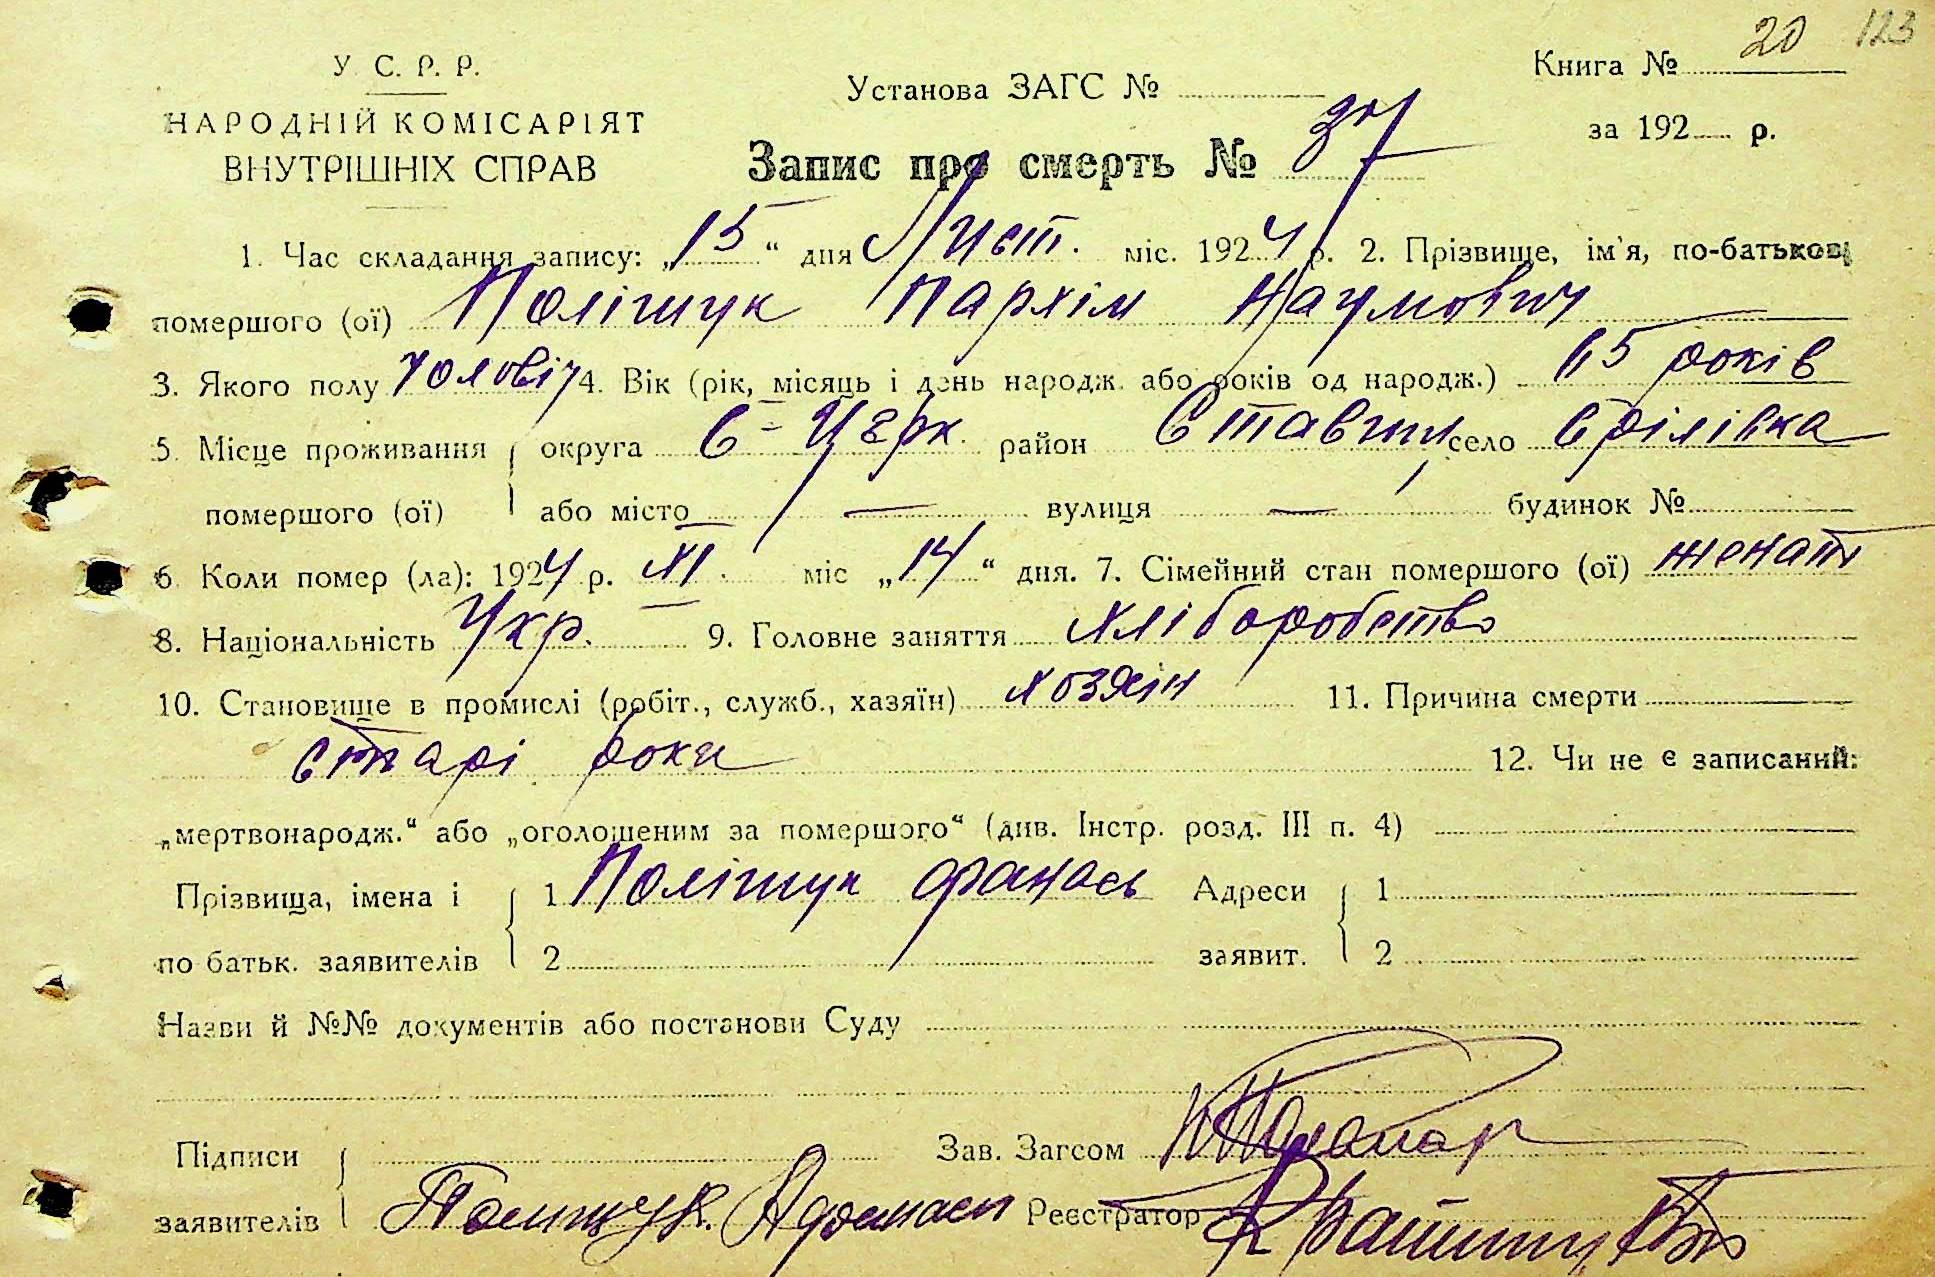 20 123
У С. Р. Р.
Книга №
Установа ЗАГС №
НАРОДНІЙ КОМІСАРІЯТ
за 192 р.
ВНУТРІШНІХ СПРАВ
Запис про смерть № 37
1. Час складання запису: „15“ дня Лист. міс. 1924 р. 2. Прізвище, ім'я, по-батькові
помершого (ої) Поліщук Пархім Наумович
3. Якого полу чоловіч 4. Вік (рік, місяць і день народж. або років од народж.) 65 років
5. Місце проживання округа Б-Церк. район Ставищ, село Стрілівка
помершого (ої) або місто — вулиця — будинок №
6 Коли помер (ла): 1924 р. XI. міс „14“ дня. 7. Сімейний стан помершого (ої) женат
8. Національність Укр. 9. Головне заняття хліборобство
10. Становище в промислі (робіт., служб., хазяїн) хозяїн 11. Причина смерти
старі роки 12. Чи не є записаний:
„мертвонародж.“ або „оголошеним за помершого“ (див. Інстр. розд. III п. 4)
Прізвища, імена і 1 Поліщук Фанась Адреси 1
по батьк. заявителів 2 заявит. 2
Назви й №№ документів або постанови Суду
Підписи Зав. Загсом
заявителів Полищук. Афанаси Реєстратор